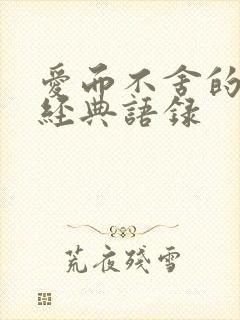 愛而不舍的
經典語録
荒夜殘雪